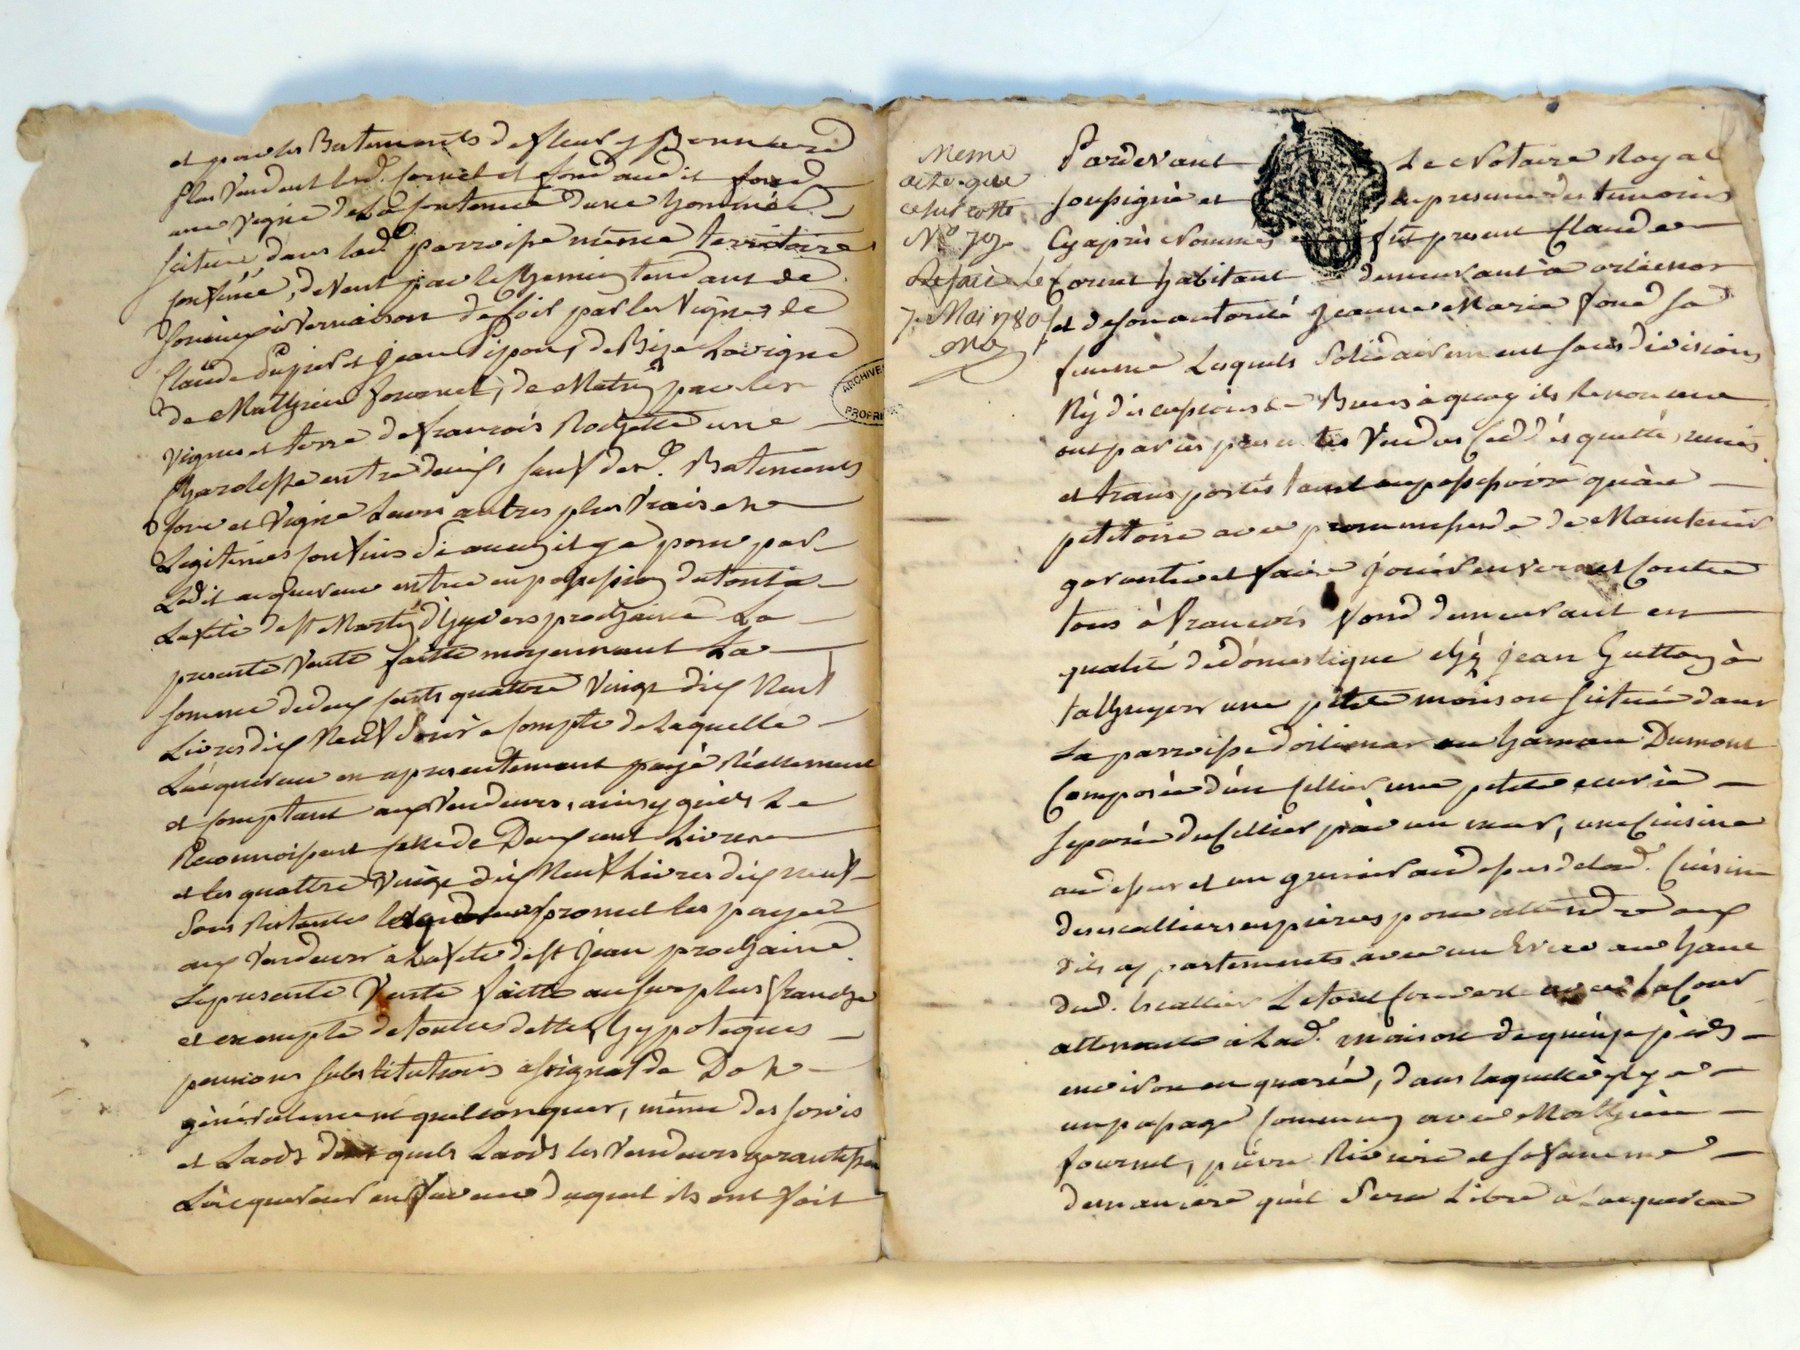 et par les Batements de fleury Bonnard
plus Vendent lesd. Cornet et fond audit fond
une vigne de La Contenue d'une hommée
scituée dans lad.e parroisse même territoire
confinée, de Vent par le chemin tendant de
à Vernaison de soir par les Vignes de
Claude Duperet jean Pipon, de Bize La vigne
de Mathieu fournet, de Matin par les
vignes et terre de françois Rochette une
entre deux, sauf desd. Batements
Cour et Vigne Leurs autres plus Vrais et
Legitimes Confins Si aucun il y a pour par
Ledit acquereur entrer en possession du tout a
La fête de st Martin d'hyvers prochaine La
presente Vente faitte moyennant La
somme de deux cents quattre Vingt dix Neuf
Livres dix Neuf Sous à compte de Laquelle
L'acquereur en a presentement payé Réellement
et comptant aux Vendeurs, ainsy qu'ils Le
Reconnoissent celle de Deux cent Livres
et les quattre Vingt dix Neuf Livres dix neuf
Sous Restantes promet les payer
aux Vendeurs à La fête de st jean prochaine
La presente Vente faitte au surplus franche
et exempte de toutes dettes, hypoteques
pensions substitutions assignat de Dot
généralement quelconques, même des servis
et Laods des quels Laods les Vendeurs garantissent
L'acquereur en faveur duquel ils ont fait
ARCHIVES
PROPRI
Meme
acte que
celui cotté
N.o 79
Refait Le
7. Mai 1780
Pardevant Le Notaire Royal
soussigné et en presence des temoins
Cy après Nommés fut present Claude
Cornet habitant demeurant à orlienas
et de son autorité jeanne Marie fond sa
femme Lesquels Solidairement sans division
Ny discussions de Biens à quoy ils Renoncent
ont par ces presentes Vendus Ced.és quittés, remis
et transportés tant au possessoire qu'au
petitoire avec promesse de Maintenir
garantir et faire jouir envers et Contre
tous à françois fond demeurant en
qualité de domestique chéz jean Guttoy à
talluyers une petite maison scituée dans
La parroisse d'orlienas au hameau Dumont
Composée d'un Cellier une petite ecurie
separée du Cellier par un mur, une Cuisine
au dessus et un grenier au dessus de lad. Cuisine
des escalliers en pierres pour attendre aux
dits appartements avec un Evier au haut
dud. escallier Le tout Couvert avec La Cour
attenante à Lad. maison de quinze pieds
environ en quarré, dans laquelle il y a
un passage commun avec Mathieu
fournet, pierre Riviere et sa femme
de maniere qu'il Sera Libre à L'acquereur